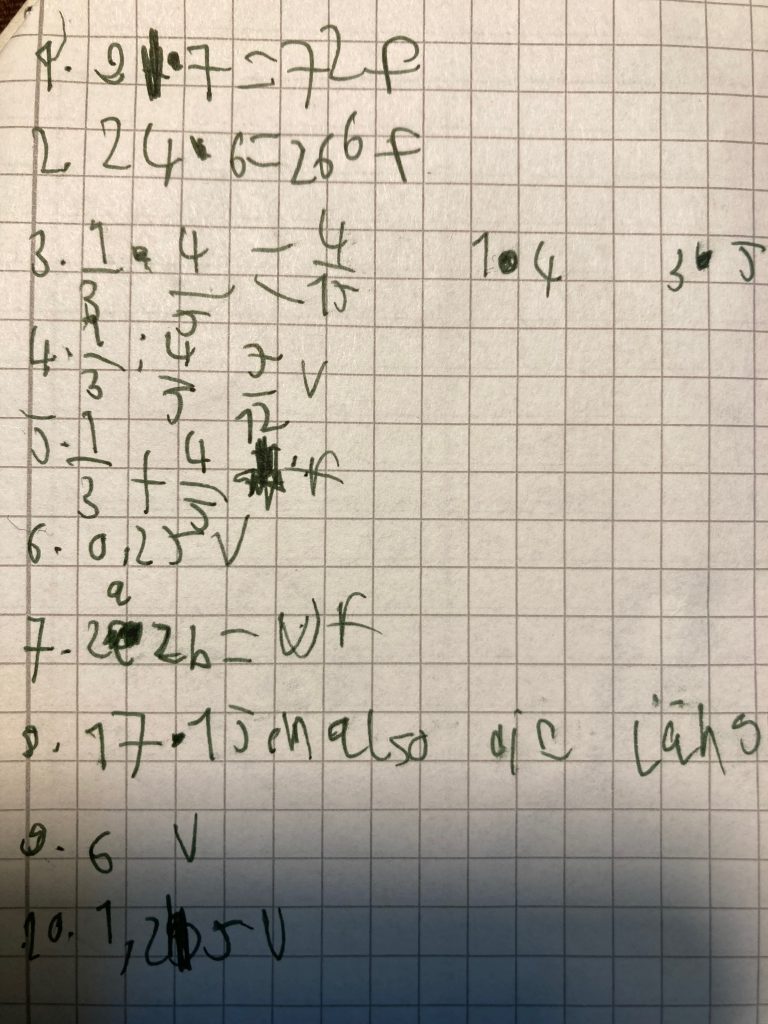 1. 9 · 7 = 72 f
2. 24 · 6 = 266 f
3. 1/3 · 4/5 = 4/15 1 · 4 3 · 5
4. 1/3 : 4/5 5/12 v
5. 1/3 + 4/5 f
6. 0,25 v
7. 2a 2b = v f
8. 17 · 15 cm also die Läng
9. 6 v
10. 1,25 v